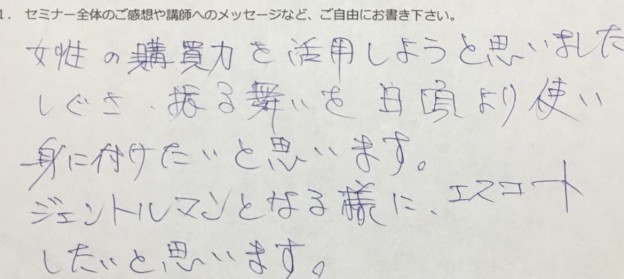 1. セミナー全体のご感想や講師へのメッセージなど、ご自由にお書き下さい。
女性の購買力を活用しようと思いました
しぐさ、振る舞いを日頃より使い
身に付けたいと思います。
ジェントルマンとなる様に、エスコート
したいと思います。